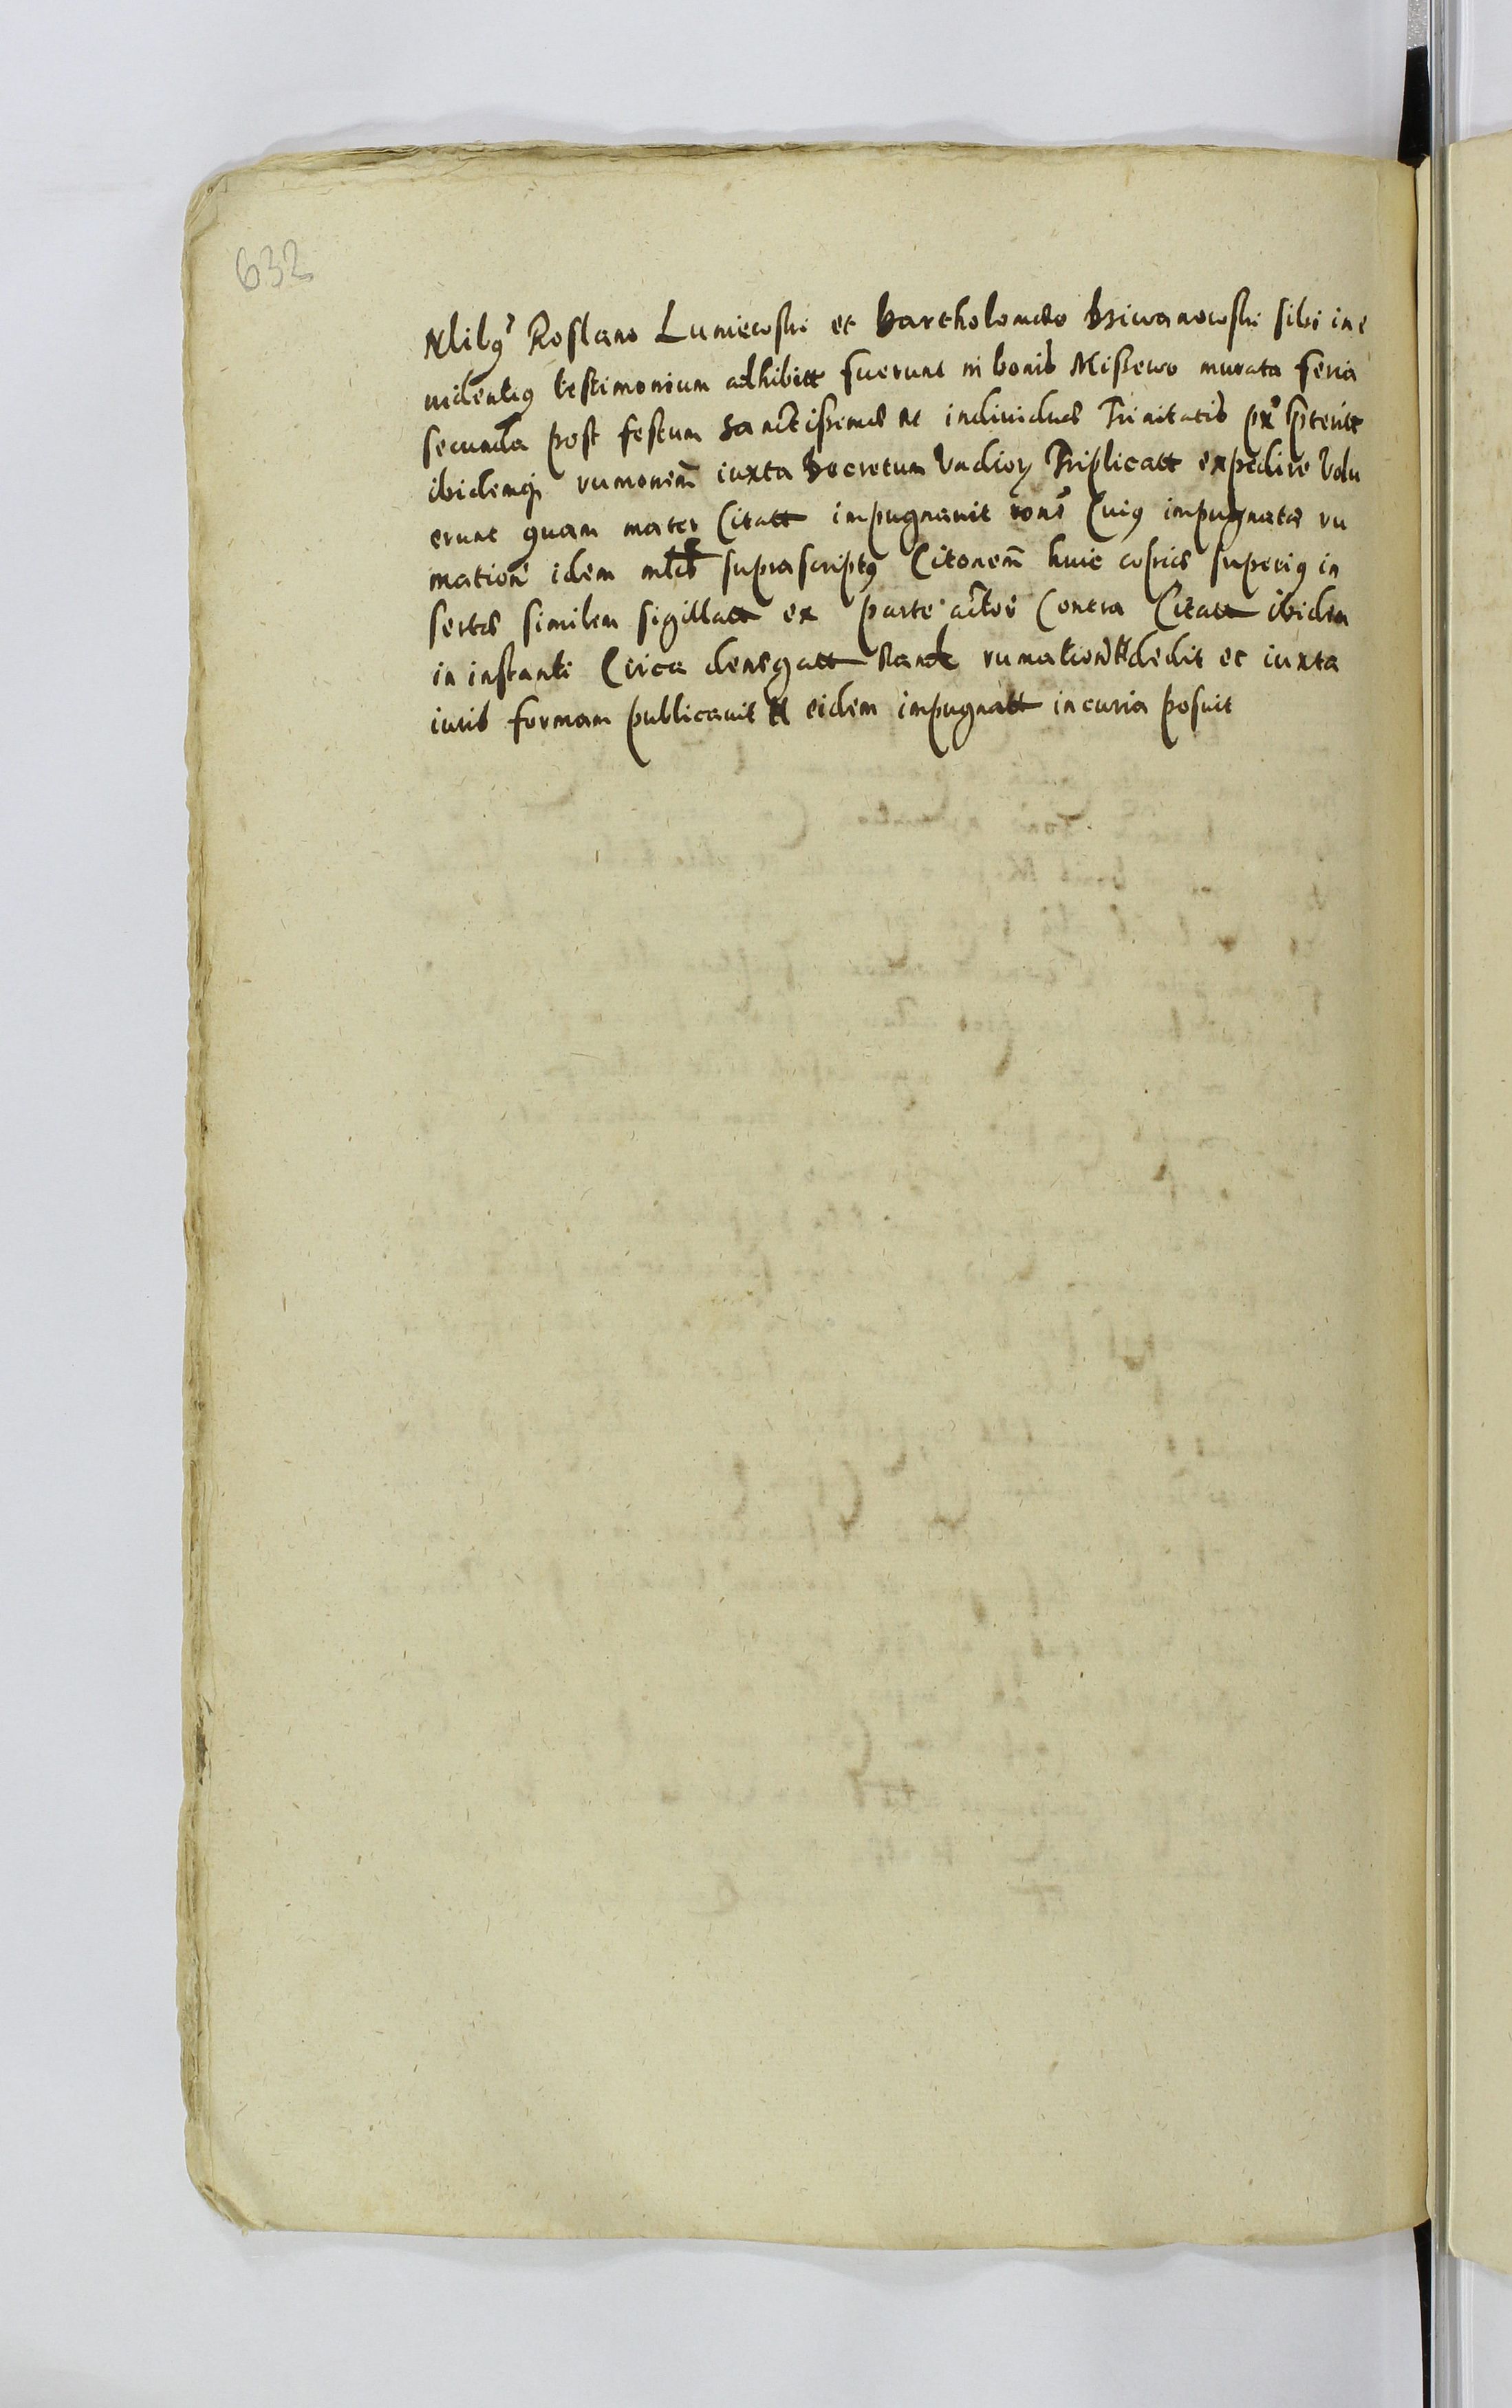 632
Nlibus Roslano Luniewski et Bartholomeo Dziwanowski sibi in e
uidentius testimonium adhibitt fuerunt in bonis Missewo murata feria
secunda post festum Sanctissimae ac individuae Trinitatis px pterite
ibidemq rumonem iuxta Decretum Vadior Triplicatt expedire Volu
erunt quam mater Citatt impugnavit rone Cuius impugnatae ru
mationē idem suprascriptus Citonem huic copiae superius in
sertae similem sigillatt ex parte actoris Contra Citatt ibidem
in instanti Circa denegatt rumationē dedit et iuxta
iuris formam publicavit et eidem impugnatt in curia posuit